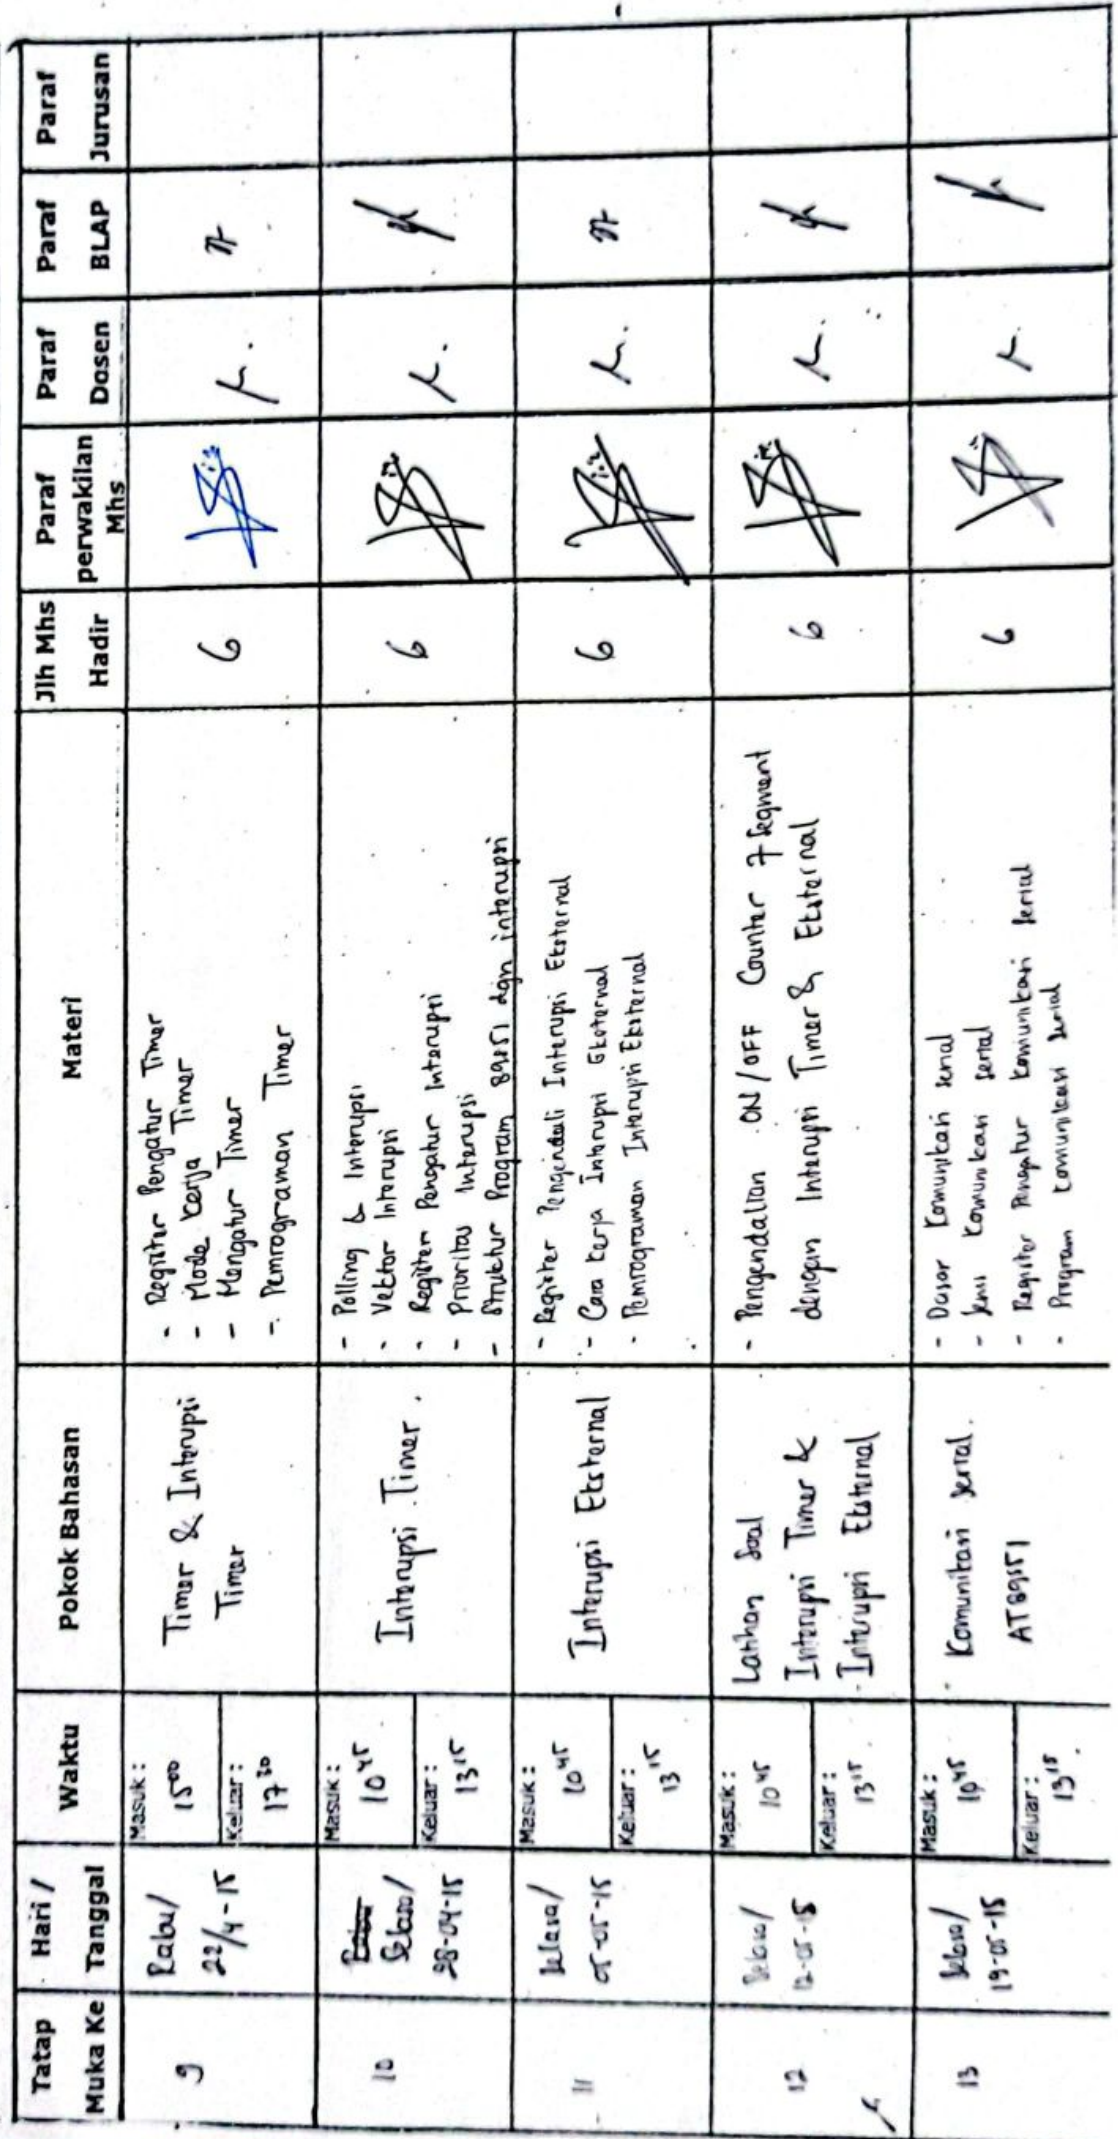 Tatap Muka Ke
Hari / Tanggal
Waktu
Pokok Bahasan
Materi
Jlh Mhs Hadir
Paraf perwakilan Mhs
Paraf Dosen
Paraf BLAP
Paraf Jurusan
9
Rabu/
22/4-15
Masuk :
15⁰⁰
Keluar :
17³⁰
Timer & Interupsi
Timer
- Register Pengatur Timer
- Mode kerja Timer
- Mengatur Timer
- Pemrograman Timer
6
10
Selasa/
28-04-15
Masuk :
10⁴⁵
Keluar :
13¹⁵
Interupsi Timer.
- Polling & Interupsi
- Vektor Interupsi
- Register Pengatur Interupsi
- Prioritas Interupsi
- Struktur Program 89s51 dgn interupsi
6
11
Selasa/
05-05-15
Masuk :
10⁴⁵
Keluar :
13¹⁵
Interupsi Eksternal
- Register Pengendali Interupsi Eksternal
- Cara kerja Interupsi Eksternal
- Pemrograman Interupsi Eksternal
6
12
Selasa/
12-05-15
Masuk :
10⁴⁵
Keluar :
13¹⁵
Latihan Soal
Interupsi Timer &
Interupsi Eksternal
- Pengendalian ON/OFF Counter 7 Segment
dengan Interupsi Timer & Eksternal
6
13
Selasa/
19-05-15
Masuk :
10⁴⁵
Keluar :
13¹⁵
Komunikasi Serial.
AT89s51
- Dasar komunikasi serial
- Jenis komunikasi serial
- Register Pengatur komunikasi serial
- Program komunikasi serial
6